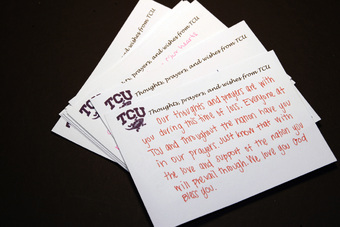 Thoughts, prayers, and wishes from TCU
prayers, and wishes from TCU
TCU
Thoughts, prayers, and wishes from TCU
TCU
Our thoughts and prayers are with
you during this time of loss. Everyone at
TCU and throughout the nation have you
in our prayers. Just know that with
the love and support of the nation you
will prevail though. We love you God
Bless you.